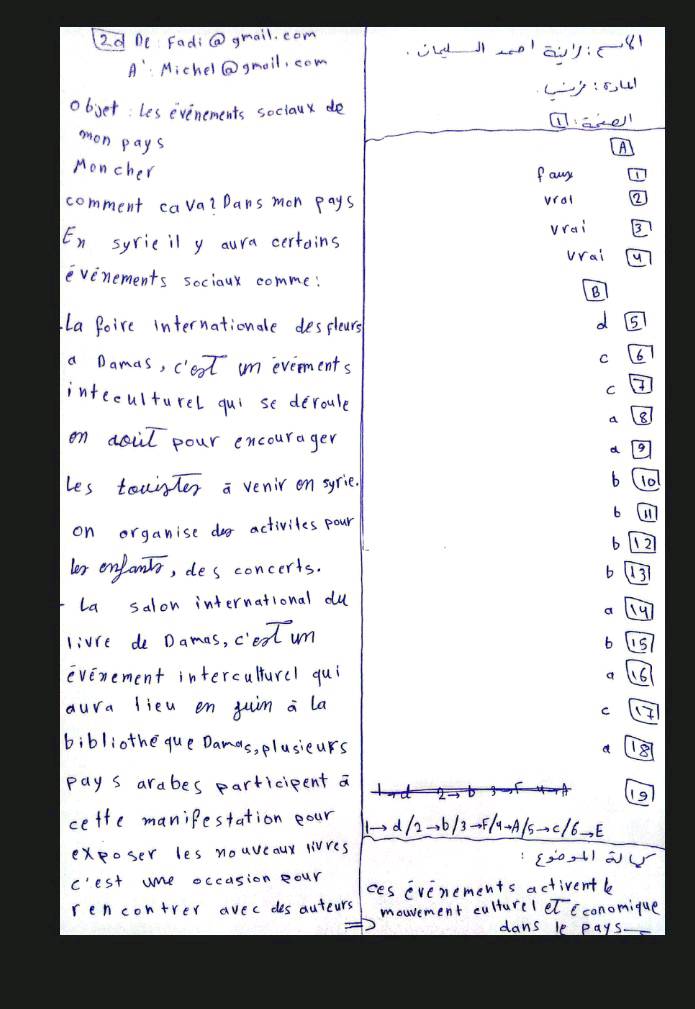 الاسم : رانية احمد السليمان .
المادة : فرنسي .
الصفحة : 1
A
faux 1
vrai 2
vrai 3
vrai 4
B
d 5
c 6
c 7
a 8
a 9
b 10
b 11
b 12
b 13
a 14
b 15
a 16
c 17
a 18
1→d 2→b 3→F 4→A 19
1→d/2→b/3→F/4→A/5→c/6→E
20 De : Fadi@gmail.com
A' : Michel@gmail.com
objet : Les événements sociaux de
mon pays
Mon cher
comment ca va? Dans mon pays
En syrie il y aura certains
événements sociaux comme :
-La foire internationale des fleurs
a Damas, c'est un évemments
inteculturel qui se déroule
en août pour encourager
les touristes à venir en syrie.
on organise des activites pour
les enfants, des concerts.
- La salon international du
livre de Damas, c'est un
événement interculturel qui
aura lieu en juin à la
bibliothéque Damas, plusieurs
pays arabes participent à
cette manifestation pour
exposer les nouveaux livres
c'est une occasion pour
rencontrer avec des auteurs
=>
كمالة الموضوع :
ces événements activent le
mouvement culturel et économique
dans le pays